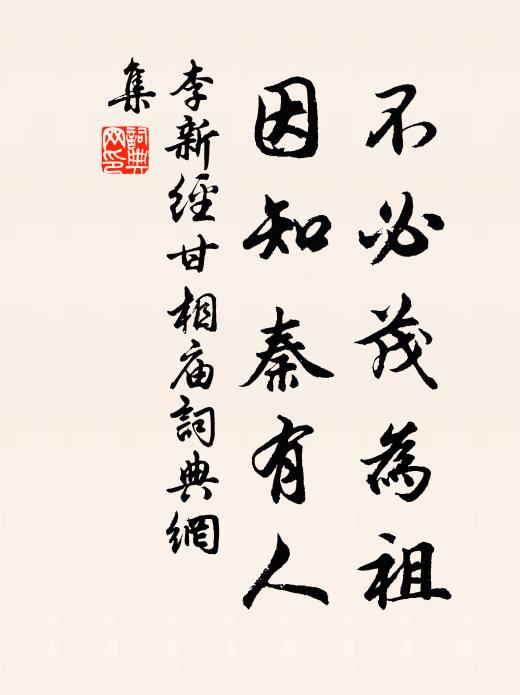 不必茂為祖
因知秦有人
李新經甘相庙詞典網
集
詞典网印